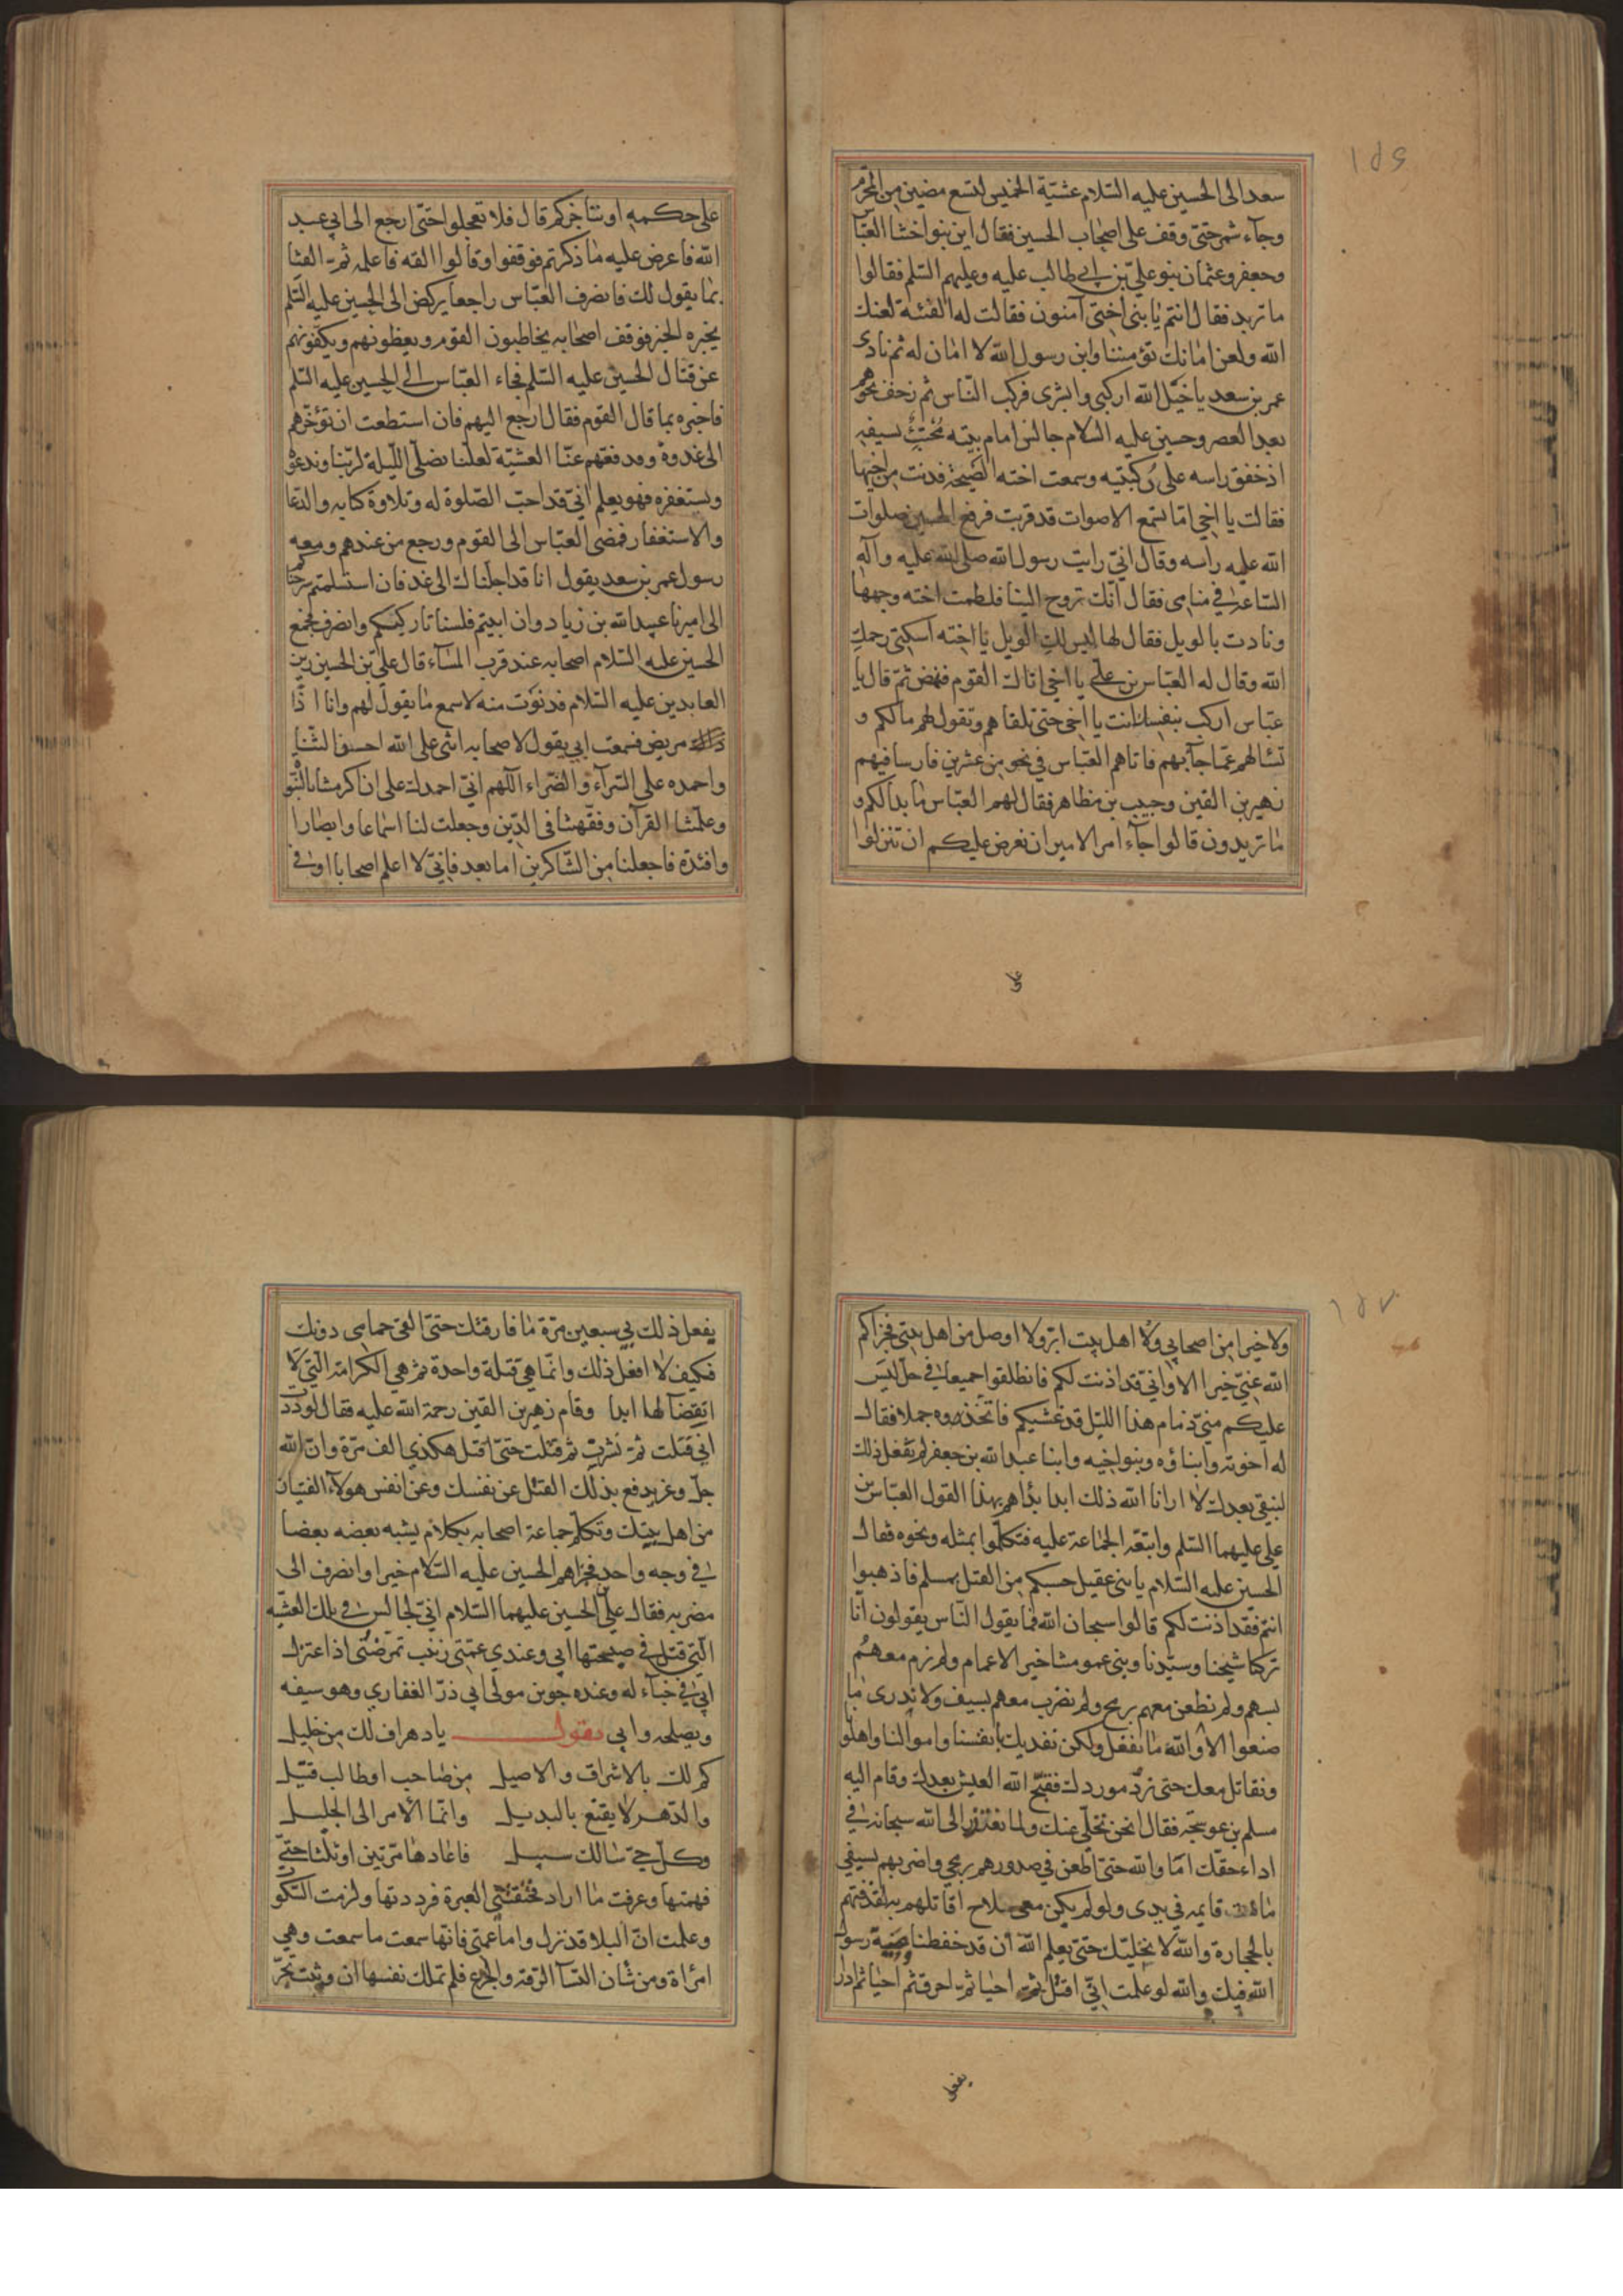 ١٨٦
سعد الى الحسين عليه السّلام عشيّة الخميس لتسع مضين من المحرّم
وجآء شمر حتى وقف على اصحاب الحسين فقال اين بنوا اختنا العبّاس
وجعفر وعثمان بنو عليّ بن ابي طالب عليه وعليهم السّلم فقالوا
ما تريد فقال انتم يا بني اختي آمنون فقالت له الفئة لعنك
الله ولعن امانك تؤمننا وابن رسول الله لا امان له ثم نادى
عمر بن سعد يا خيل الله اركبي وابشرى فركب النّاس ثم زحف نحوهم
بعد العصر وحسين عليه السلام جالس امام بيته محتبٌ بسيفه
اذ خفق راسه على ركبتيه وسمعت اخته الصّيحة فدنت من اخيها
فقالت يا اخي امّا تسمع الاصوات قد قربت فرفع الحسين صلوات
الله عليه راسه وقال انّي رايت رسول الله صلى الله عليه وآله
السّاعة في منامى فقال انّك تروح الينا فلطمت اخته وجهها
ونادت بالويل فقال لها ليس لك الويل يا اخته اسكتي رحمك
الله وقال له العبّاس بن عليّ يا اخي اتاك القوم فنهض ثمّ قال يا
عبّاس اركب بنفسك انت يا اخي حتى تلقاهم وتقول لهم ما لكم و
تسالهم عمّا جآء بهم فاتاهم العبّاس في نحو من عشرين فارسا فيهم
زهير بن القين وحبيب بن مظاهر فقال لهم العبّاس ما بدا لكم و
ما تريدون قالوا جآء امر الامير ان نعرض عليكم ان تنزلوا
على
على حكمه او نناجزكم قال فلا تعجلوا حتّى ارجع الى ابي عبد
الله فاعرض عليه ما ذكرتم فوقفوا وقالوا القه فاعلمه ثمّ القنا
بما يقول لك فانصرف العبّاس راجعا يركض الى الحسين عليه السّلم
يخبره الخبر فوقف اصحابه يخاطبون القوم ويعظونهم ويكفّونهم
عن قتال الحسين عليه السّلم فجاء العبّاس الى الحسين عليه السّلم
فاخبره بما قال القوم فقال ارجع اليهم فان استطعت ان تؤخّرهم
الى غدوة وتدفعهم عنّا العشيّة لعلّنا نصلّي اللّيلة لربّنا وندعوه
ونستغفره فهو يعلم انّي قد احبّ الصّلوة له وتلاوة كتابه والدّعا
والاستغفار فمضى العبّاس الى القوم ورجع من عندهم ومعه
رسول عمر بن سعد يقول انا قد اجلّناك الى غد فان استسلمتم سرحنا
الى اميرنا عبيد الله بن زياد وان ابيتم فلسنا تاركيكم وانصرف فجمع
الحسين عليه السّلام اصحابه عند قرب المسآء قال عليّ بن الحسين زين
العابدين عليه السّلام فدنوت منه لاسمع ما يقول لهم وانا اذا
ذاك مريض فسمعت ابي يقول لاصحابه اثنى على الله احسن الثّنا
واحمده على السّرآء والضّراء اللّهم انّي احمدك على ان اكرمتنا بالنّبوّ
وعلّمتنا القرآن وفقّهتنا في الدّين وجعلت لنا اسماعا وابصارا
وافئدة فاجعلنا من الشّاكرين اما بعد فانّي لا اعلم اصحابا اوفى
١٨٧
ولا خيرا من اصحابي ولا اهل بيت ابرّ ولا اوصل من اهل بيتي فجزاكم
الله عنّي خيرا الا وانّي قد اذنت لكم فانطلقوا جميعا في حلّ ليس
عليكم منّي ذمام هذا اللّيل قد غشيكم فاتّخذوه جملا فقال
له اخوته وابناؤه وبنو اخيه وابنا عبد الله بن جعفر لم نفعل ذلك
لنبقى بعدك لا ارانا الله ذلك ابدا بداهم بهذا القول العبّاس بن
علي عليهما السّلم واتبعّه الجماعة عليه فتكلّموا بمثله ونحوه فقال
الحسين عليه السّلام يا بنى عقيل حسبكم من القتل بمسلم فاذهبوا
انتم فقد اذنت لكم قالوا سبحان الله فما يقول النّاس يقولون انا
تركنا شيخنا وسيّدنا وبنى عمومتنا خير الاعمام ولم نرم معهم
بسهم ولم نطعن معهم برمح ولم نضرب معهم بسيف ولا ندرى ما
صنعوا لا والله ما نفعل ولكن نفديك بانفسنا واموالنا واهلونا
ونقاتل معك حتى نرد موردك فقبّح الله العيش بعدك وقام اليه
مسلم بن عوسجة فقال انحن نخلّي عنك ولما نعتذر الى الله سبحانه في
اداء حقّك امّا والله حتى اطعن في صدورهم برمحي واضربهم بسيفي
ما ثبت قايمه في يدى ولو لم يكن معى سلاح اقاتلهم به لقذفتهم
بالحجارة والله لا نخليّك حتى يعلم الله ان قد حفظنا غيبة رسول
الله فيك والله لو علمت انّي اقتل ثمّ احيا ثمّ احرق ثم احيا ثم اذر
يفعل
يفعل ذلك بي سبعين مرّة ما فارقتك حتى القى حمامى دونك
فكيف لا افعل ذلك وانّما هي قتلة واحدة ثم هي الكرامة الّتي لا
انقضآ لها ابدا وقام زهير بن القين رحمة الله عليه فقال لوددت
انّي قتلت ثمّ نشرت ثم قتلت حتى اقتل هكذي الف مرّة وانّ الله
جلّ وعز يدفع بذلك القتل عن نفسك وعن انفس هولآء الفتيان
من اهل بيتك وتكلّم جماعة اصحابه بكلام يشبه بعضه بعضا
في وجه واحد فجزاهم الحسين عليه السّلام خيرا وانصرف الى
مضربه فقال عليّ الحسين عليهما السّلام انّي لجالس في تلك العشيّة
الّتي قتل في صبيحتها ابي وعندي عمّتي زينب تمرضني اذ اعتزل
ابي في خبآء له وعنده جوين مولى ابي ذرّ الغفاري وهو سيفه
ويصلحه وابي يقول يا دهر اف لك من خليل
كم لك بالاشراق والاصيل من صاحب او طالب قتيل
والدّهر لا يقنع بالبديل وانّما الأمر الى الجليل
وكلّ حيّ سالك سبيل فاعادها مرّتين او ثلثا حتّى
فهمتها وعرفت ما اراد فخنقتني العبرة فرددتها ولزمت السّكوت
وعلمت انّ البلا قد نزل واما عمتي فانّها سمعت ما سمعت وهي
امرأة ومن شأن النّسآ الرّقة والجزع فلم تملك نفسها ان وثبت تجرّ